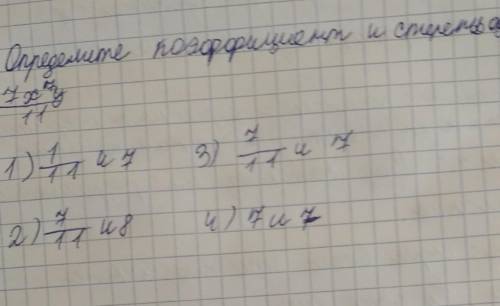 Определите коэффициент и степень од
7x⁷y
11
1) 1/11 и 7 3) 7/11 и 7
2) 7/11 и 8 4) 7 и 7